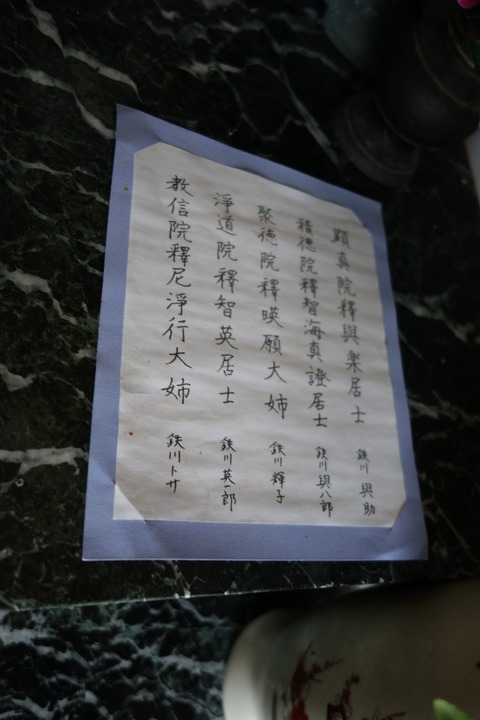 顕真院釋與楽居士 鉄川 與助
積徳院釋智海真證居士 鉄川 與八郎
聚徳院釋暎願大姉 鉄川 輝子
淨道院釋智英居士 鉄川 英一郎
教信院釋尼淨行大姉 鉄川 トサ